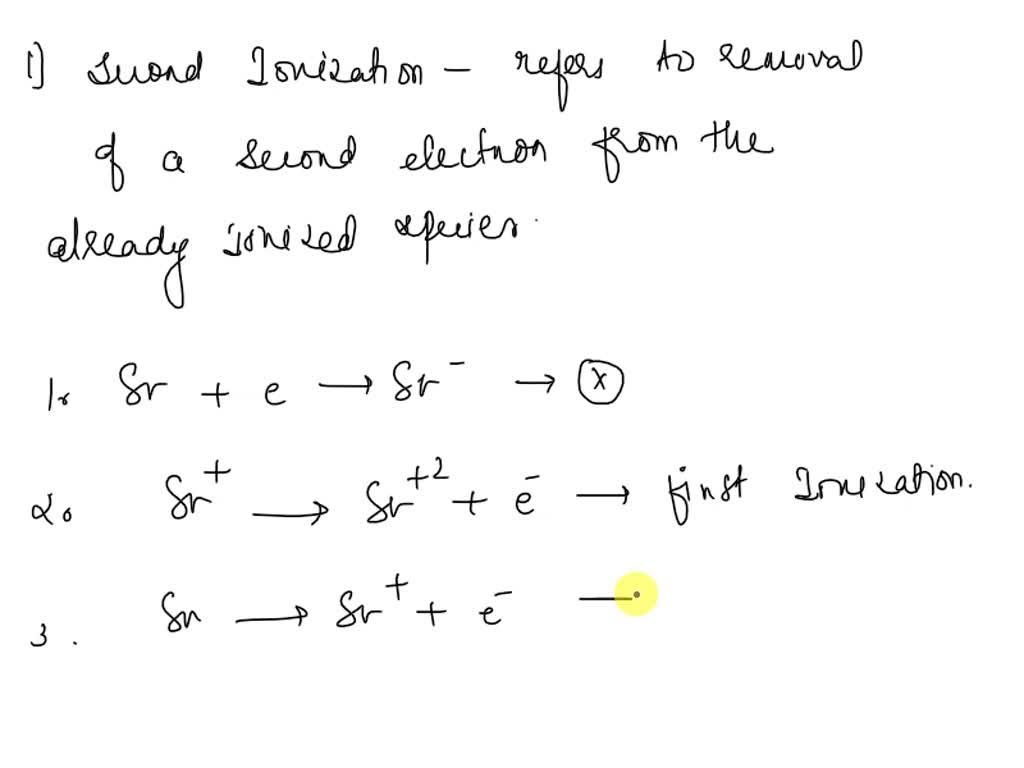 1) Second Ionization – refers to removal
of a second electron from the
already ionized species.
1. Sr + e → Sr⁻ → (x)
2. Sr⁺ → Sr⁺² + e⁻ → first Ionization.
3. Sr → Sr⁺ + e⁻ —